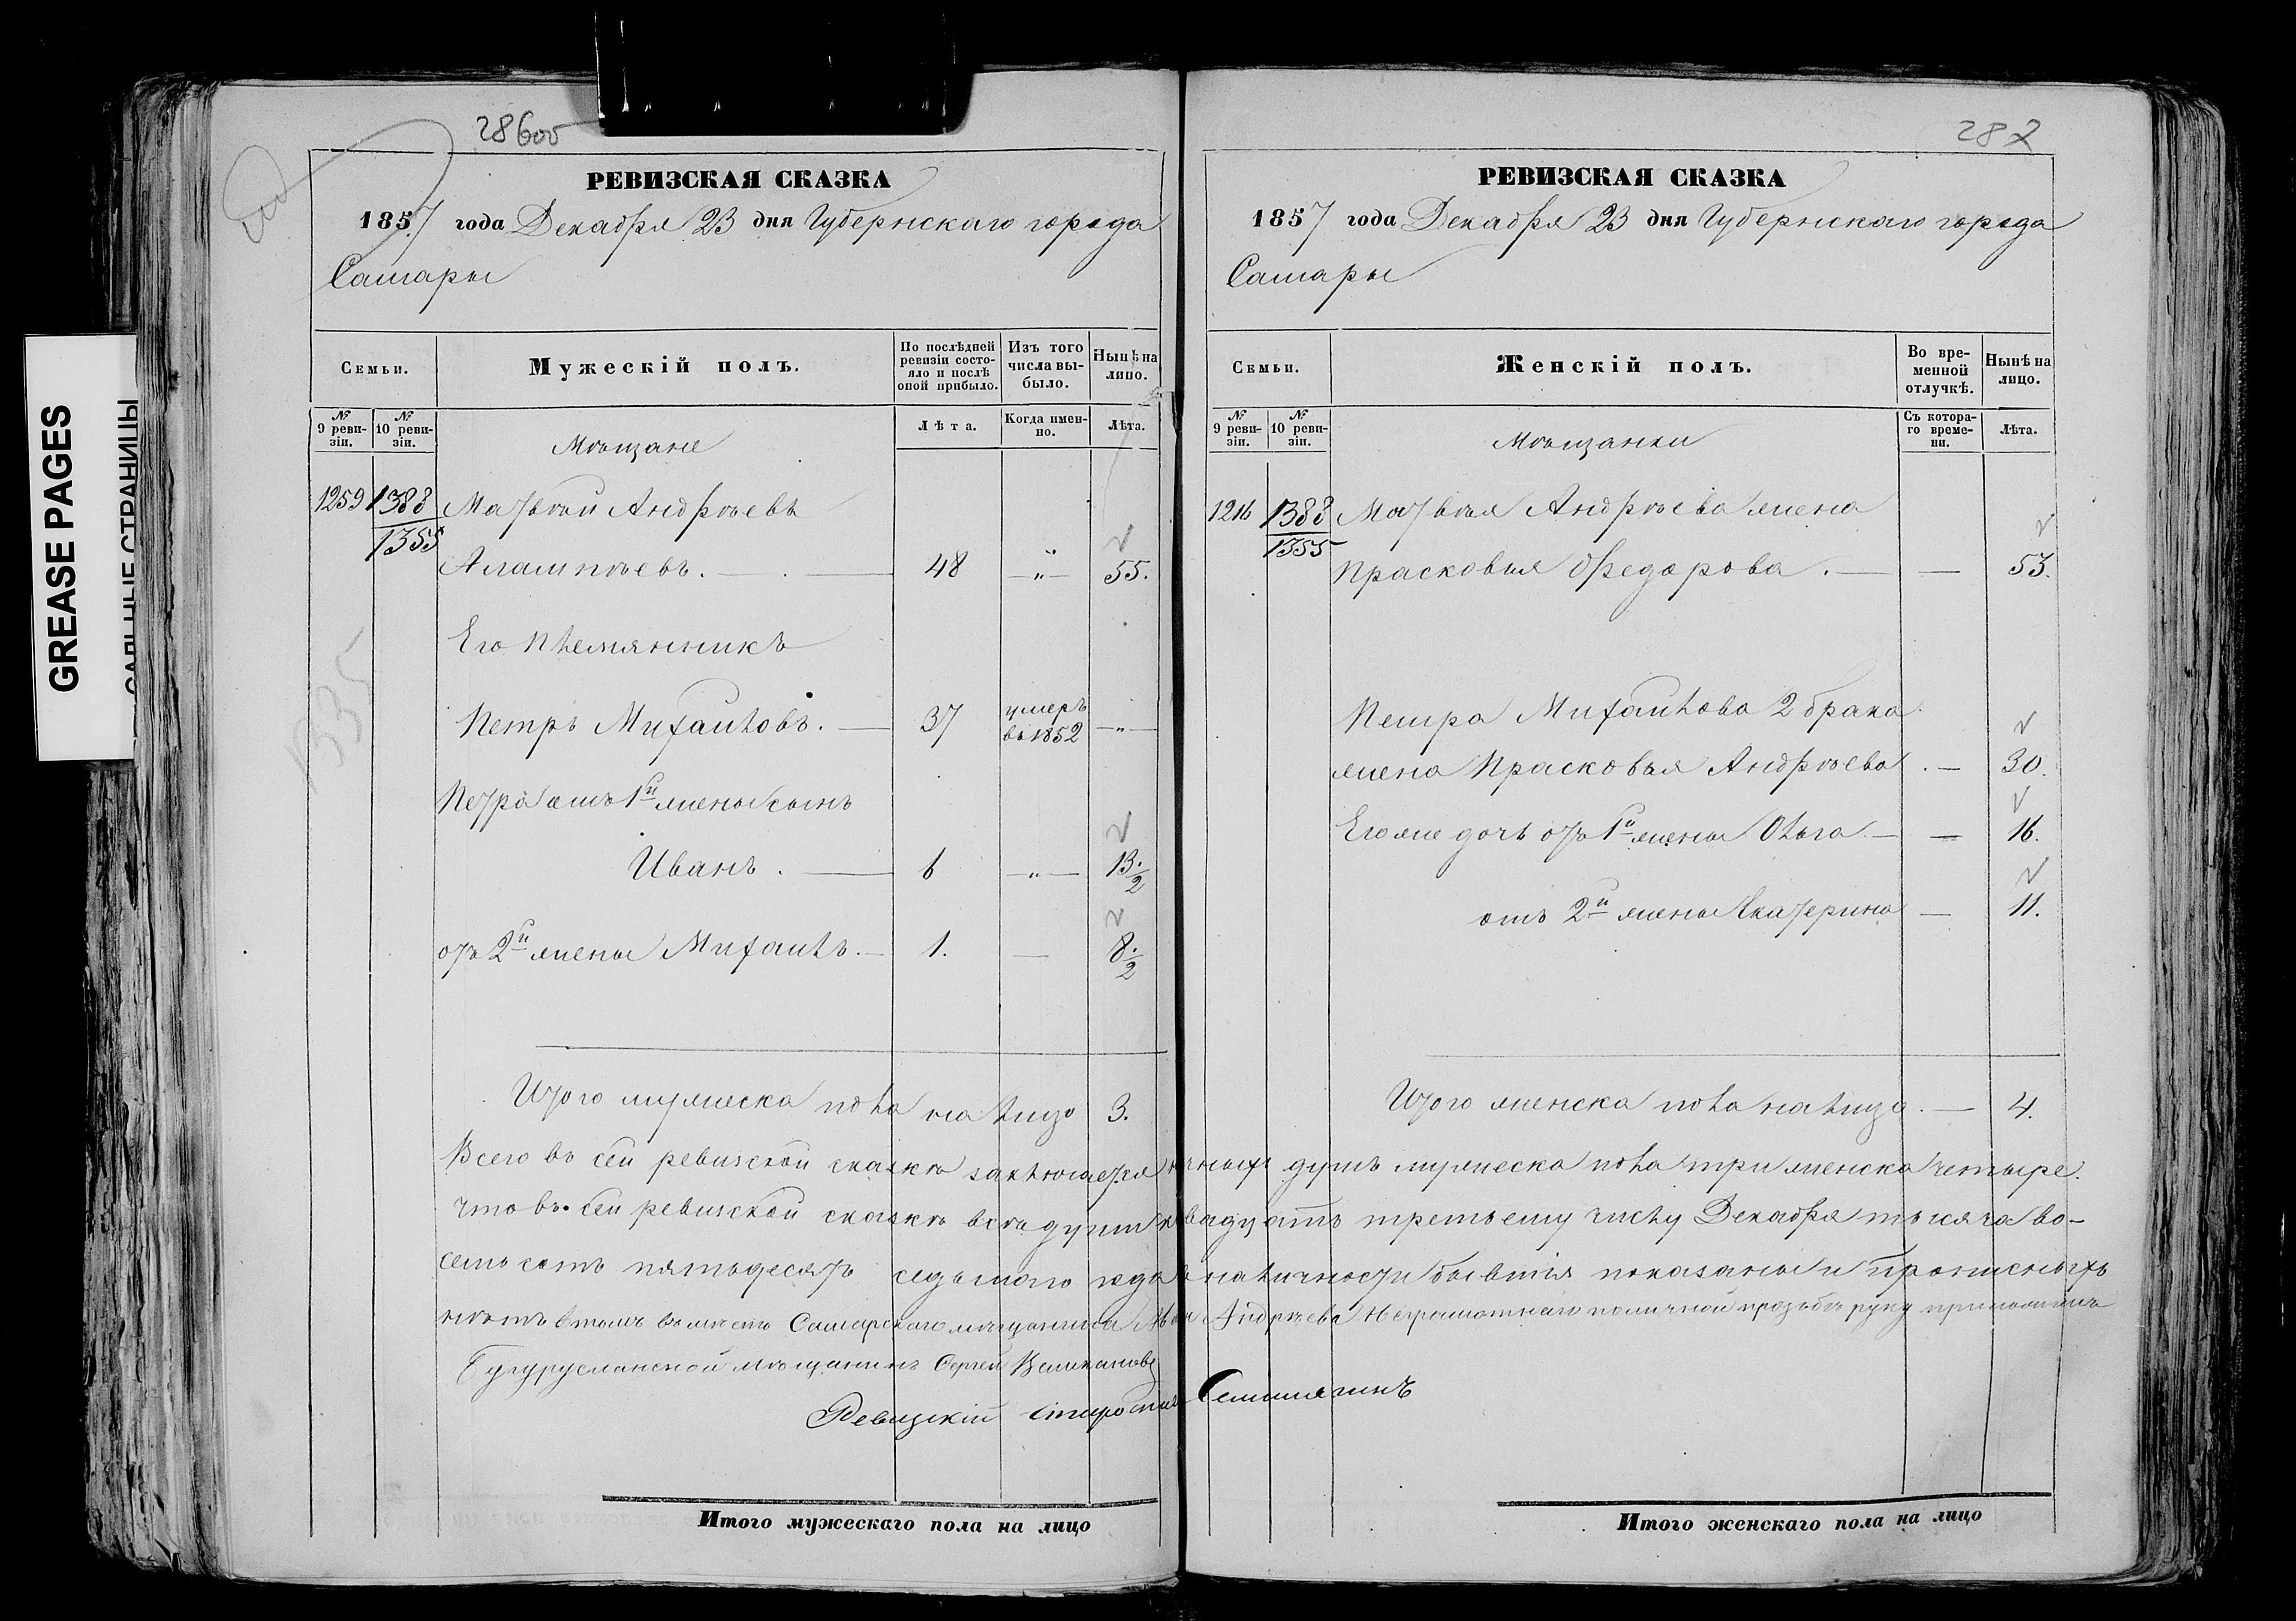 GREASE PAGES
28600
РЕВИЗСКАЯ СКАЗКА
1857 года Декабря 23 дня Губернскаго города
Самары
Семьи.
Мужескій полъ.
По послѣдней ревизіи состо-
яло и послѣ
оной прибыло.
Изъ того
числа вы-
было.
Нынѣ на
лицо.
№
9 реви-
зіи.
№
10 реви-
зіи.
Лѣта.
Когда имен-
но.
Лѣта.
Мѣщане
1259 1388 Матвѣй Андрѣевъ
1355
48 " 55.
Его племянникъ
Петръ Михайловъ. 37 умеръ въ 1852 "
Петра отъ 1й жены сынъ
Иванъ. 6 " 13.
2
отъ 2й жены Михаилъ. 1. 8.
2
Итого мужеска пола на лицо 3.
1335
282
РЕВИЗСКАЯ СКАЗКА
1857 года Декабря 23 дня Губернскаго города
Самары
Семьи.
Женскій полъ.
Во вре-
менной
отлучкѣ.
Нынѣ на
лицо.
№
9 реви-
зіи.
№
10 реви-
зіи.
Съ котора-
го време-
ни.
Лѣта.
Мѣщанки
1216 1388 Матвѣя Андрѣева жена
1355
Прасковья Федорова. 53.
Петра Михайлова 2 брака
жена Прасковья Андрѣева. 30.
Его же дочь отъ 1й жены Ольга 16.
отъ 2й жены Екатерина 11.
Итого женска пола на лицо. 4.
Всего въ сей ревизской сказкѣ заключается душъ мужеска пола три женска четыре.
что въ сей ревизской сказкѣ всѣ души къ двадцать третьему числу Декабря тысяча во-
семь сотъ пятьдесятъ седьмого года въ наличности бывшія показаны и прописныхъ
нѣтъ въ томъ вмѣсто Самарскаго мѣщанина Андрѣева неграмотнаго по личной прозьбѣ руку приложилъ
Бугурусланской мѣщанинъ Сергей
Ревизскій староста
Итого мужескаго пола на лицо
Итого женскаго пола на лицо